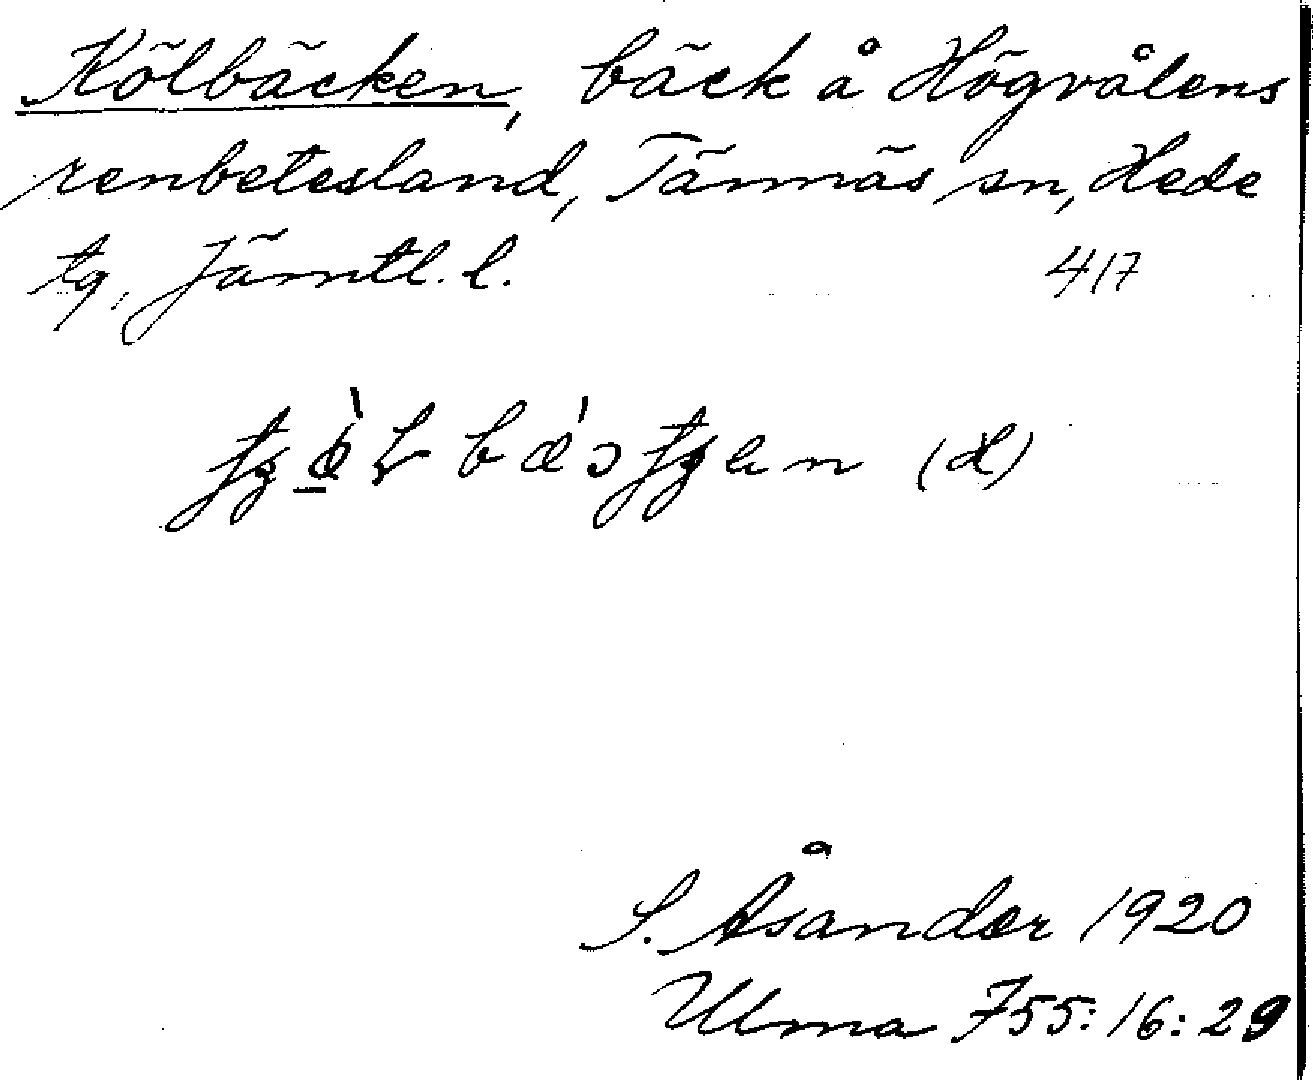 Kölbäcken, bäck å Högvålens
renbetesland, Tännäs sn, Hede
tg, Jämtl. l. 417
(L)
S. Åsander 1920
Ulma 755:16:29